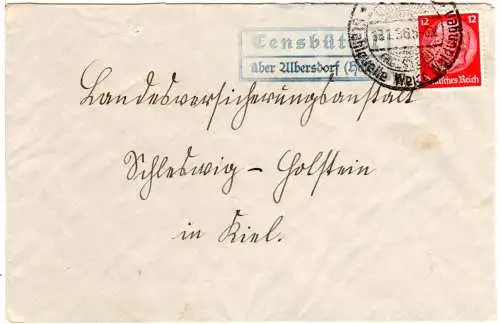 Tensbüt
über Albersdorf
13.1.36.
12 12
Deutsches Reich
Landesversicherungsanstalt
Schleswig - Holstein
in Kiel.